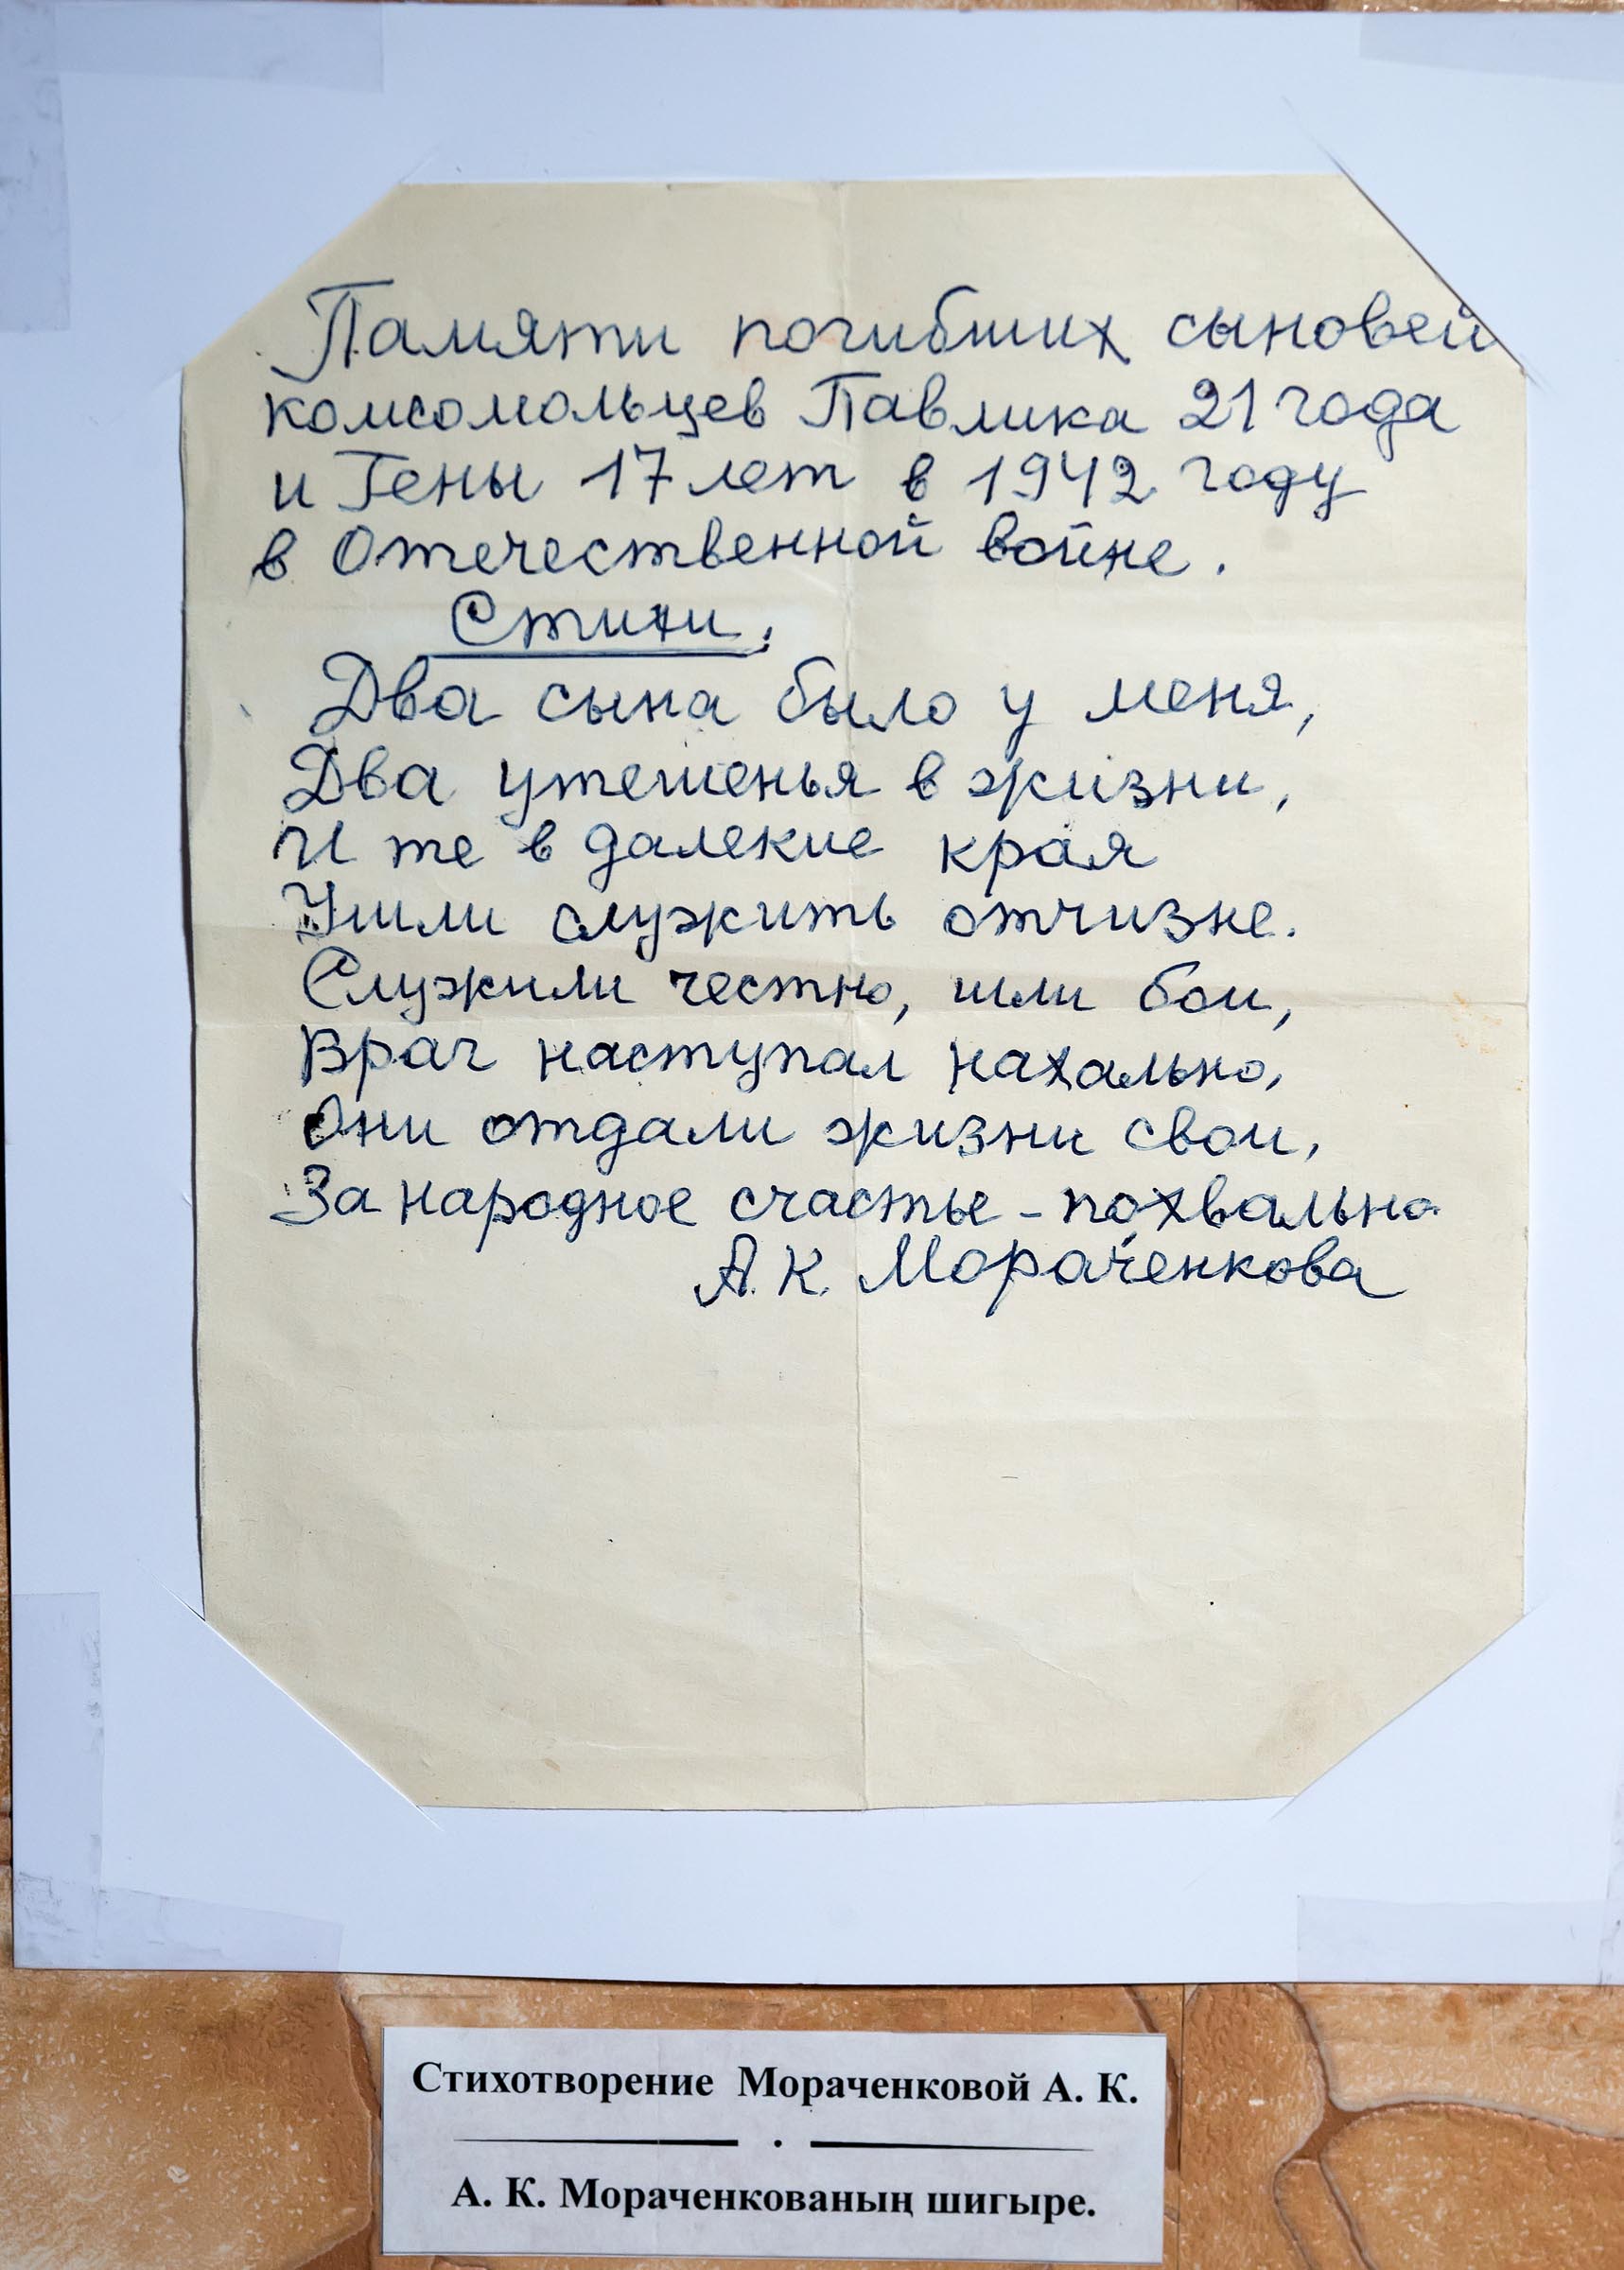 Памяти погибших сыновей
комсомольцев Павлика 21 года
и Гены 17 лет в 1942 году
в Отечественной войне.
Стихи.
Два сына было у меня,
Два утешенья в жизни,
И те в далекие края
Ушли служить отчизне.
Служили честно, шли бои,
Враг наступал нахально,
Они отдали жизни свои,
За народное счастье - похвально.
А. К. Мораченкова
Стихотворение Мораченковой А. К.
А. К. Мораченкованың шигыре.